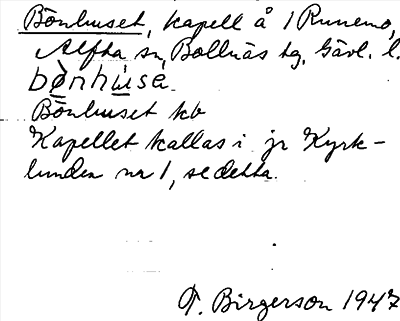 Bönhuset, kapell å 1 Runemo,
Alfta sn, Bollnäs hg, Gävl. l.
bø̀nhu̲sɛ.
Bönhuset kb
Kapellet kallas i jr Kyrk-
lunden nr 1, se detta.
T. Birgerson 1947